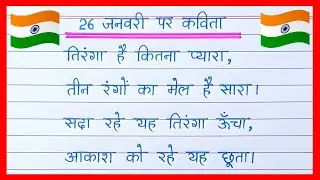 26 जनवरी पर कविता
तिरंगा है कितना प्यारा,
तीन रंगों का मेल है सारा।
सदा रहे यह तिरंगा ऊँचा,
आकाश को रहे यह छूता।